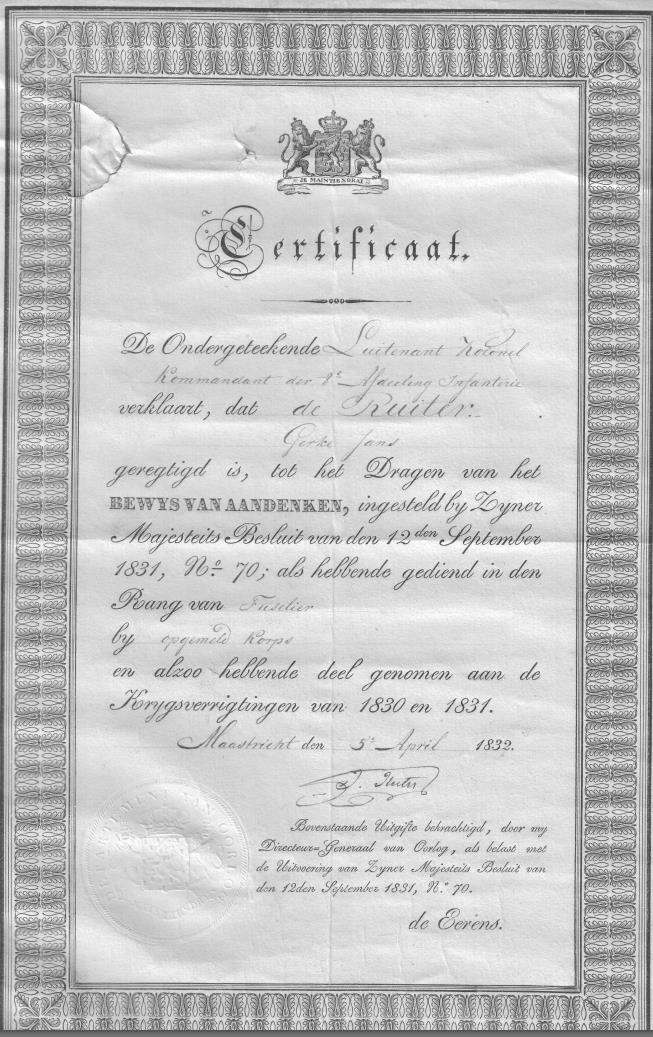 JE MAINTIENDRAI
Certificaat.
De Ondergeteekende Luitenant Kolonel
Kommandant der 8e Afdeeling Infanterie
verklaart, dat de Ruiter.
Gerke Jans
geregtigd is, tot het Dragen van het
BEWYS VAN AANDENKEN, ingesteld by Zyner
Majesteits Besluit van den 12den September
1831, No. 70; als hebbende gediend in den
Rang van Fuselier
by opgemeld Korps
en alzoo hebbende deel genomen aan de
Krygsverrigtingen van 1830 en 1831.
Maastricht den 5e April 1832.
Bovenstaande Uitgifte bekrachtigd, door my
Directeur=Generaal van Oorlog, als belast met
de Uitvoering van Zyner Majesteits Besluit van
den 12den September 1831, No. 70.
de Eerens.